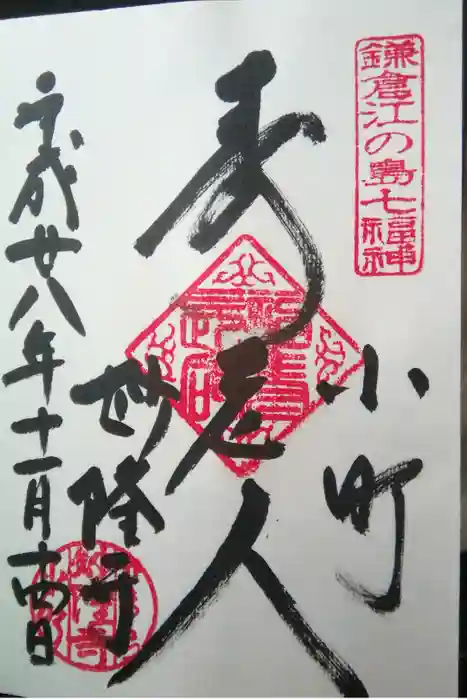 鎌倉江の島七福神
小町
寿老人
妙隆寺
平成廿八年十一月十四日